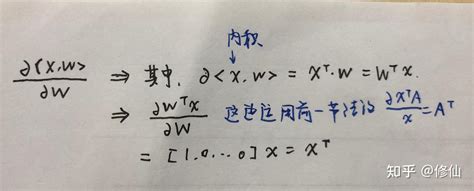 内积
∂<x,w>/∂w ⇒ 其中, ∂<x,w> = x^T·w = w^T x.
⇒ ∂w^T x/∂w 这也运用前一节法的 ∂x^T A/x = A^T
= [1.0...0] x = x^T
知乎 @修仙